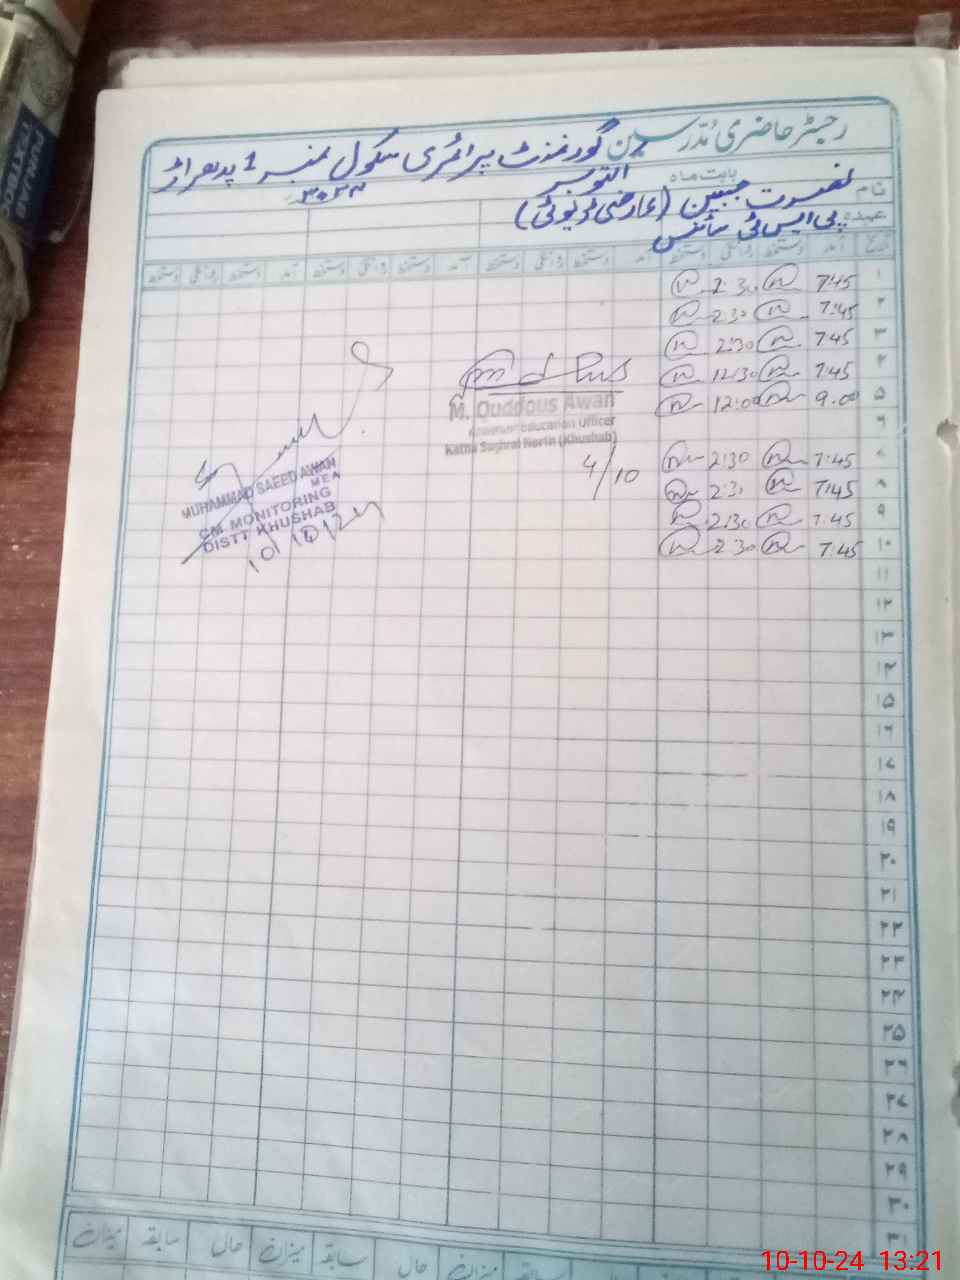 رجسٹر حاضری مدرسین گورنمنٹ پرائمری سکول نمبر 1 پدھراڑ
بابت ماہ اکتوبر ۲۰۲۴
نام نصرت جبین (عارضی ڈیوٹی)
عہدہ پی ایس ٹی سائنس
تاریخ آمد دستخط روانگی دستخط آمد دستخط روانگی دستخط آمد دستخط روانگی دستخط آمد دستخط روانگی دستخط
۱ 7:45 2:30
۲ 7:45 2:30
۳ 7:45 2:30
۴ 7:45 12:30
۵ 9.00 12:00
۶
۷ 7:45 2:30
۸ 7:45 2:30
۹ 7:45 2:30
۱۰ 7:45 2:30
۱۱
۱۲
۱۳
۱۴
۱۵
۱۶
۱۷
۱۸
۱۹
۲۰
۲۱
۲۲
۲۳
۲۴
۲۵
۲۶
۲۷
۲۸
۲۹
۳۰
۳۱
M. Quddous Awan
Assistant Education Officer
Katha Saghral North (Khushab)
4/10
MUHAMMAD SAEED AWAN
MEA
CM MONITORING
DISTT KHUSHAB
10/10/24
میزان سابقہ حال میزان سابقہ حال میزان سابقہ
PUNJAB
10-10-24 13:21